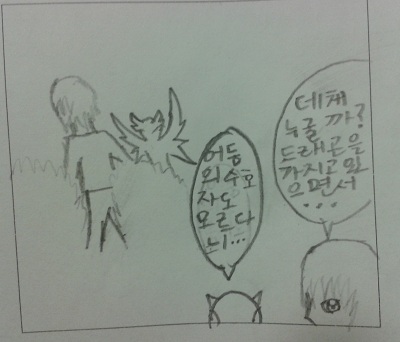 데체
누굴 까?
드래곤을
가지고 있
으면서
...
어둠
의 수호
자도
모르다
니...